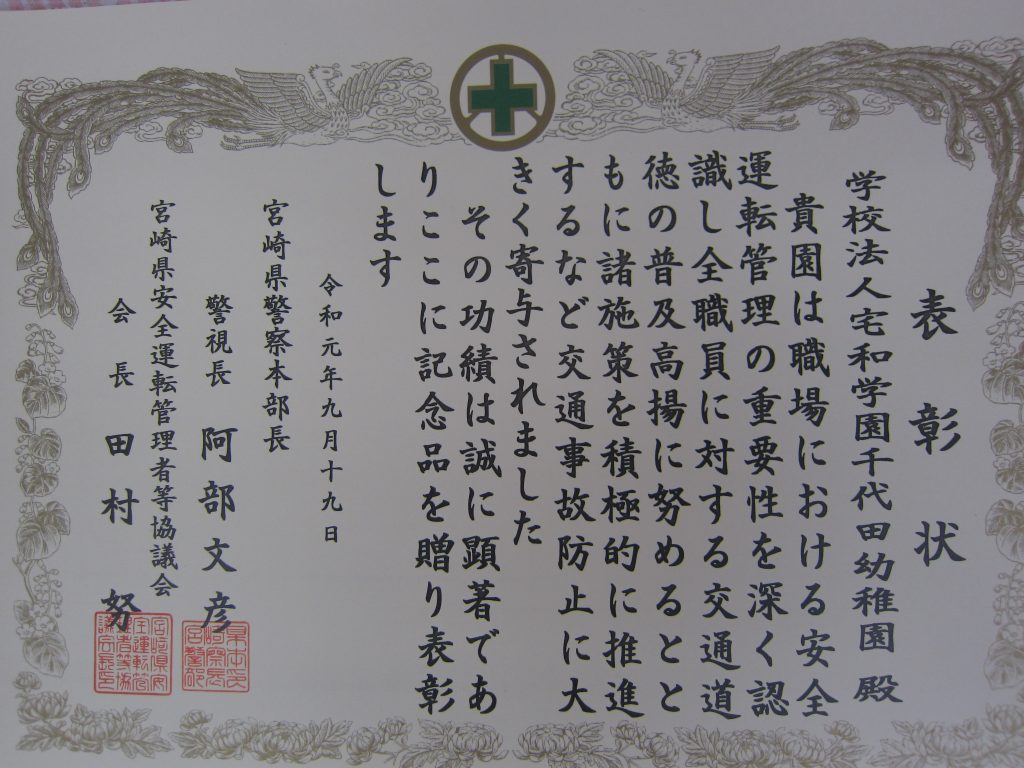 表彰状
学校法人宅和学園千代田幼稚園 殿
貴園は職場における安全
運転管理の重要性を深く認
識し全職員に対する交通道
徳の普及高揚に努めるとと
もに諸施策を積極的に推進
するなど交通事故防止に大
きく寄与されました
その功績は誠に顕著であ
りここに記念品を贈り表彰
します
令和元年九月十九日
宮崎県警察本部長
警視長 阿部文彦
宮崎県安全運転管理者等協議会
会長 田村努